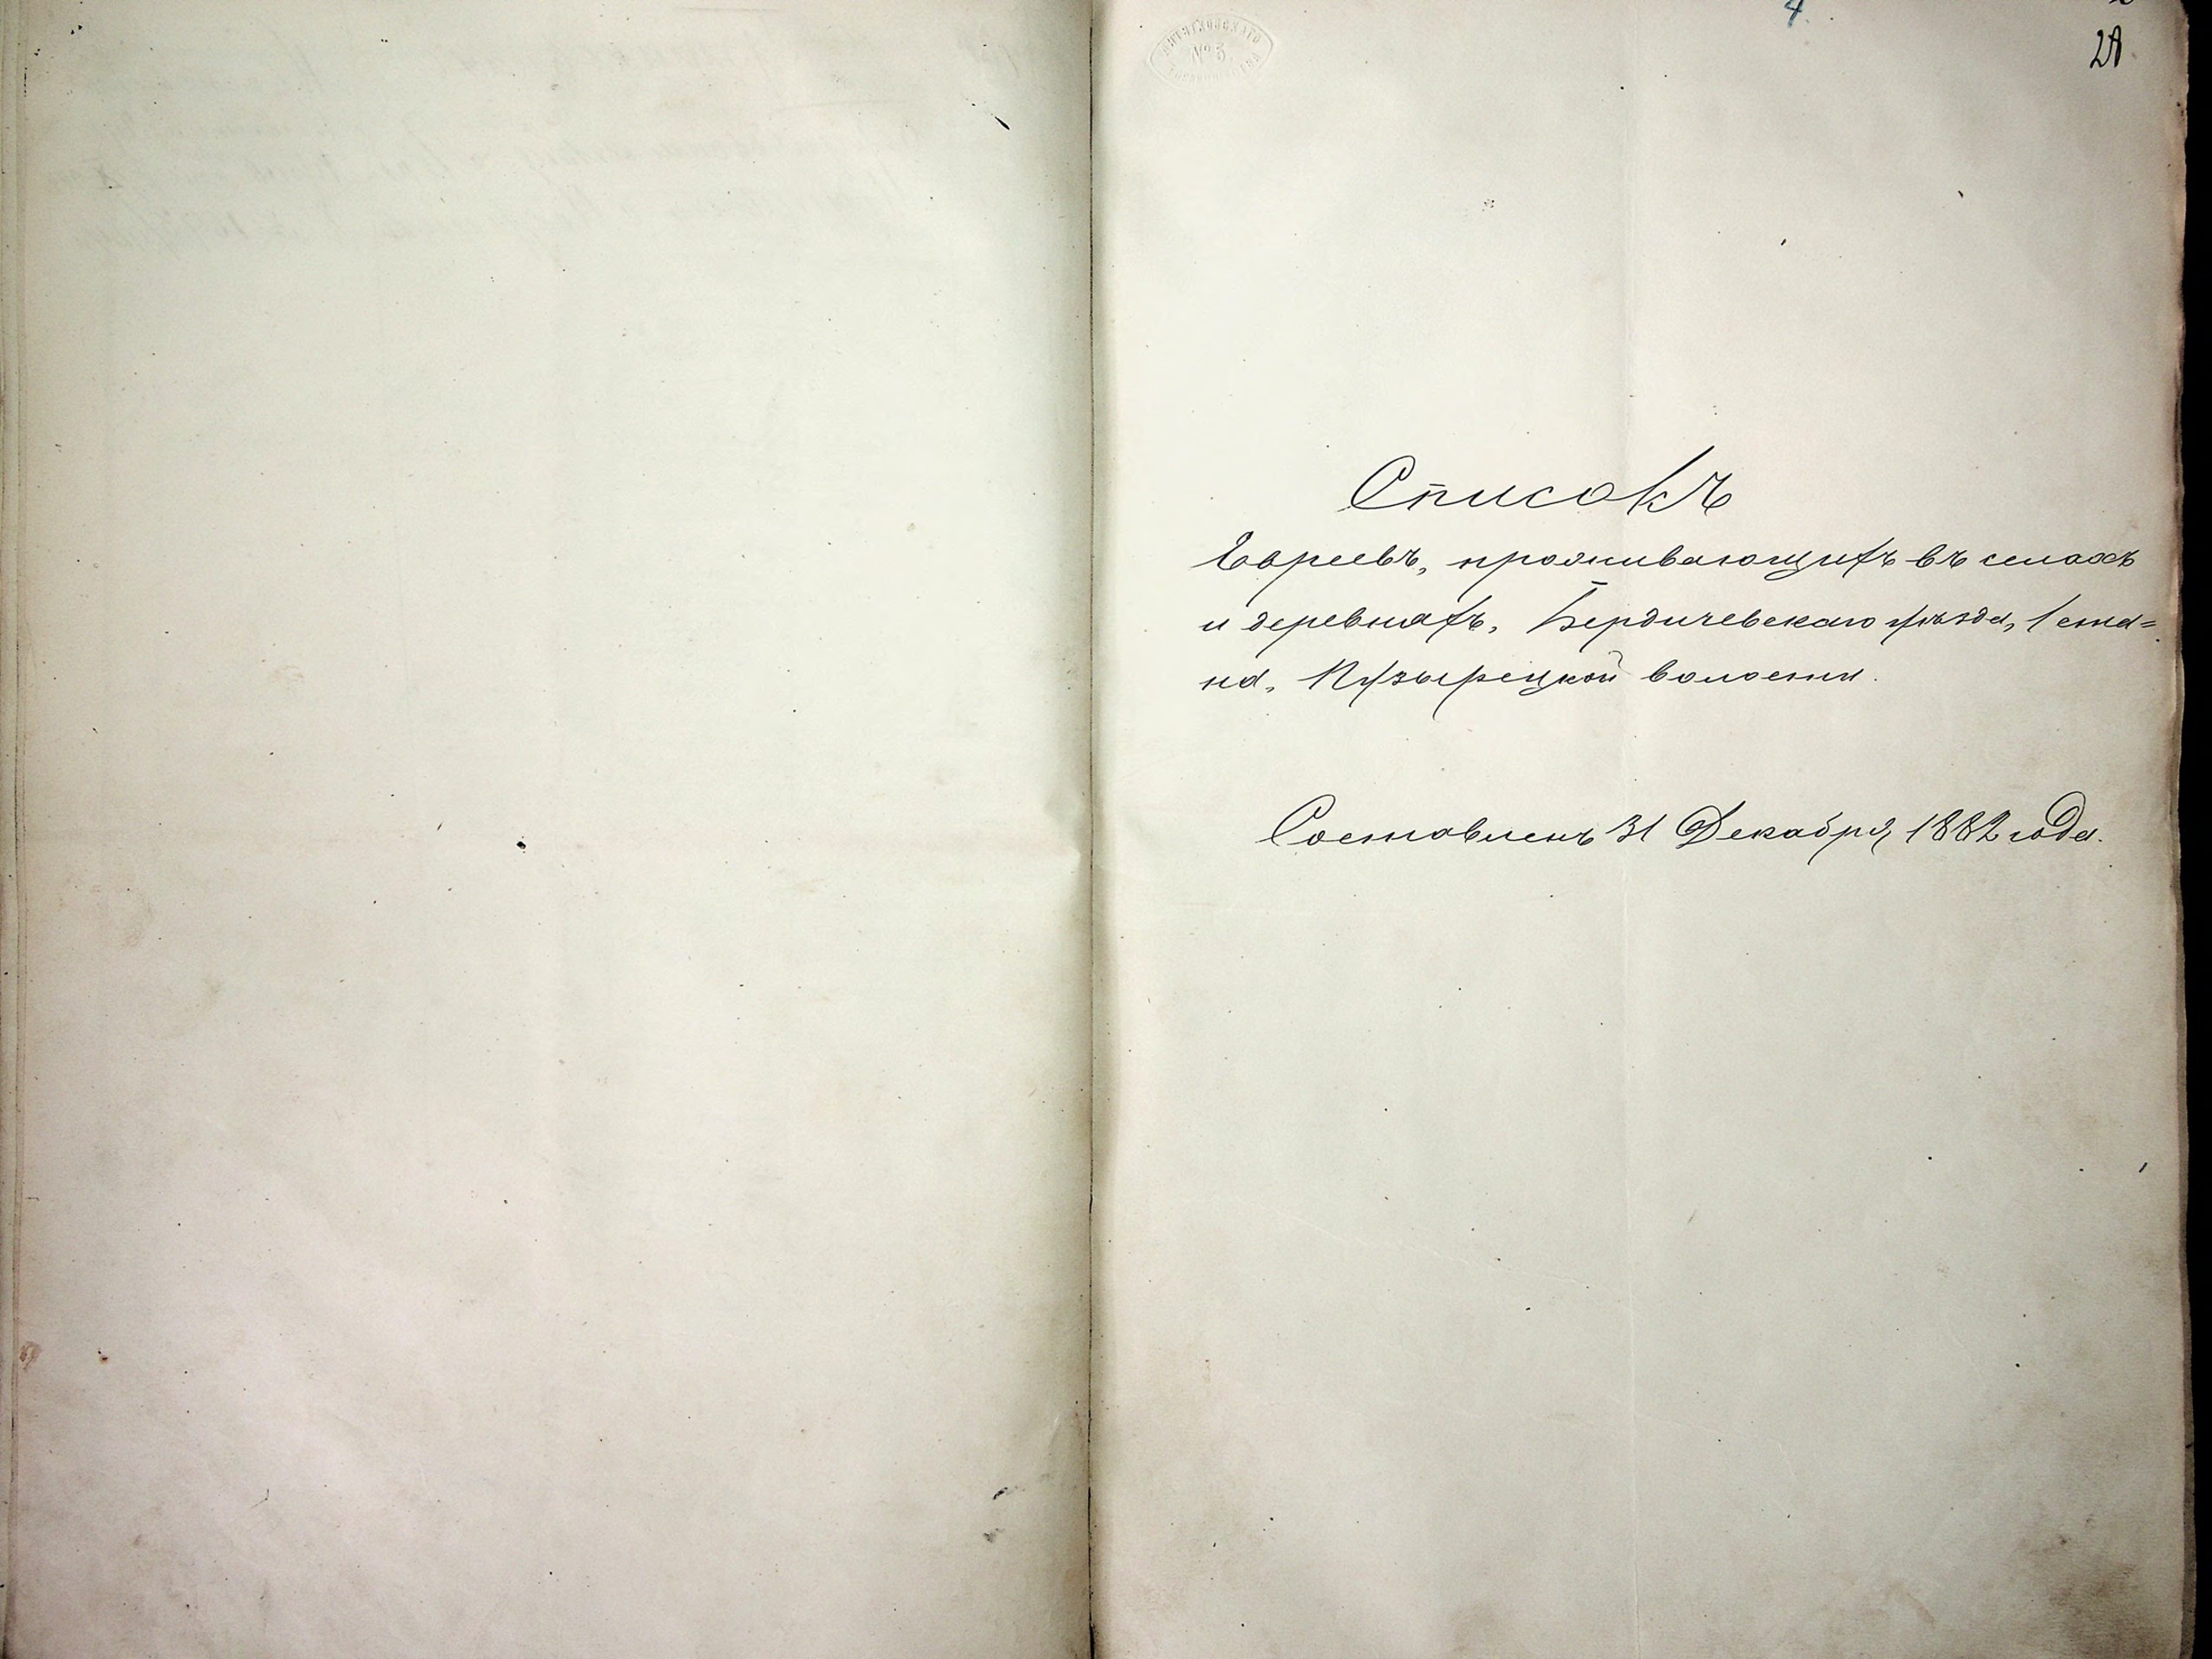 4
2А
№ 3
Списокъ
Евреевъ, проживающихъ въ селахъ
и деревняхъ, Бердичевскаго уѣзда, 1 ста=
на, Пузырецкой волости.
Составленъ 31 Декабря 1882 года.